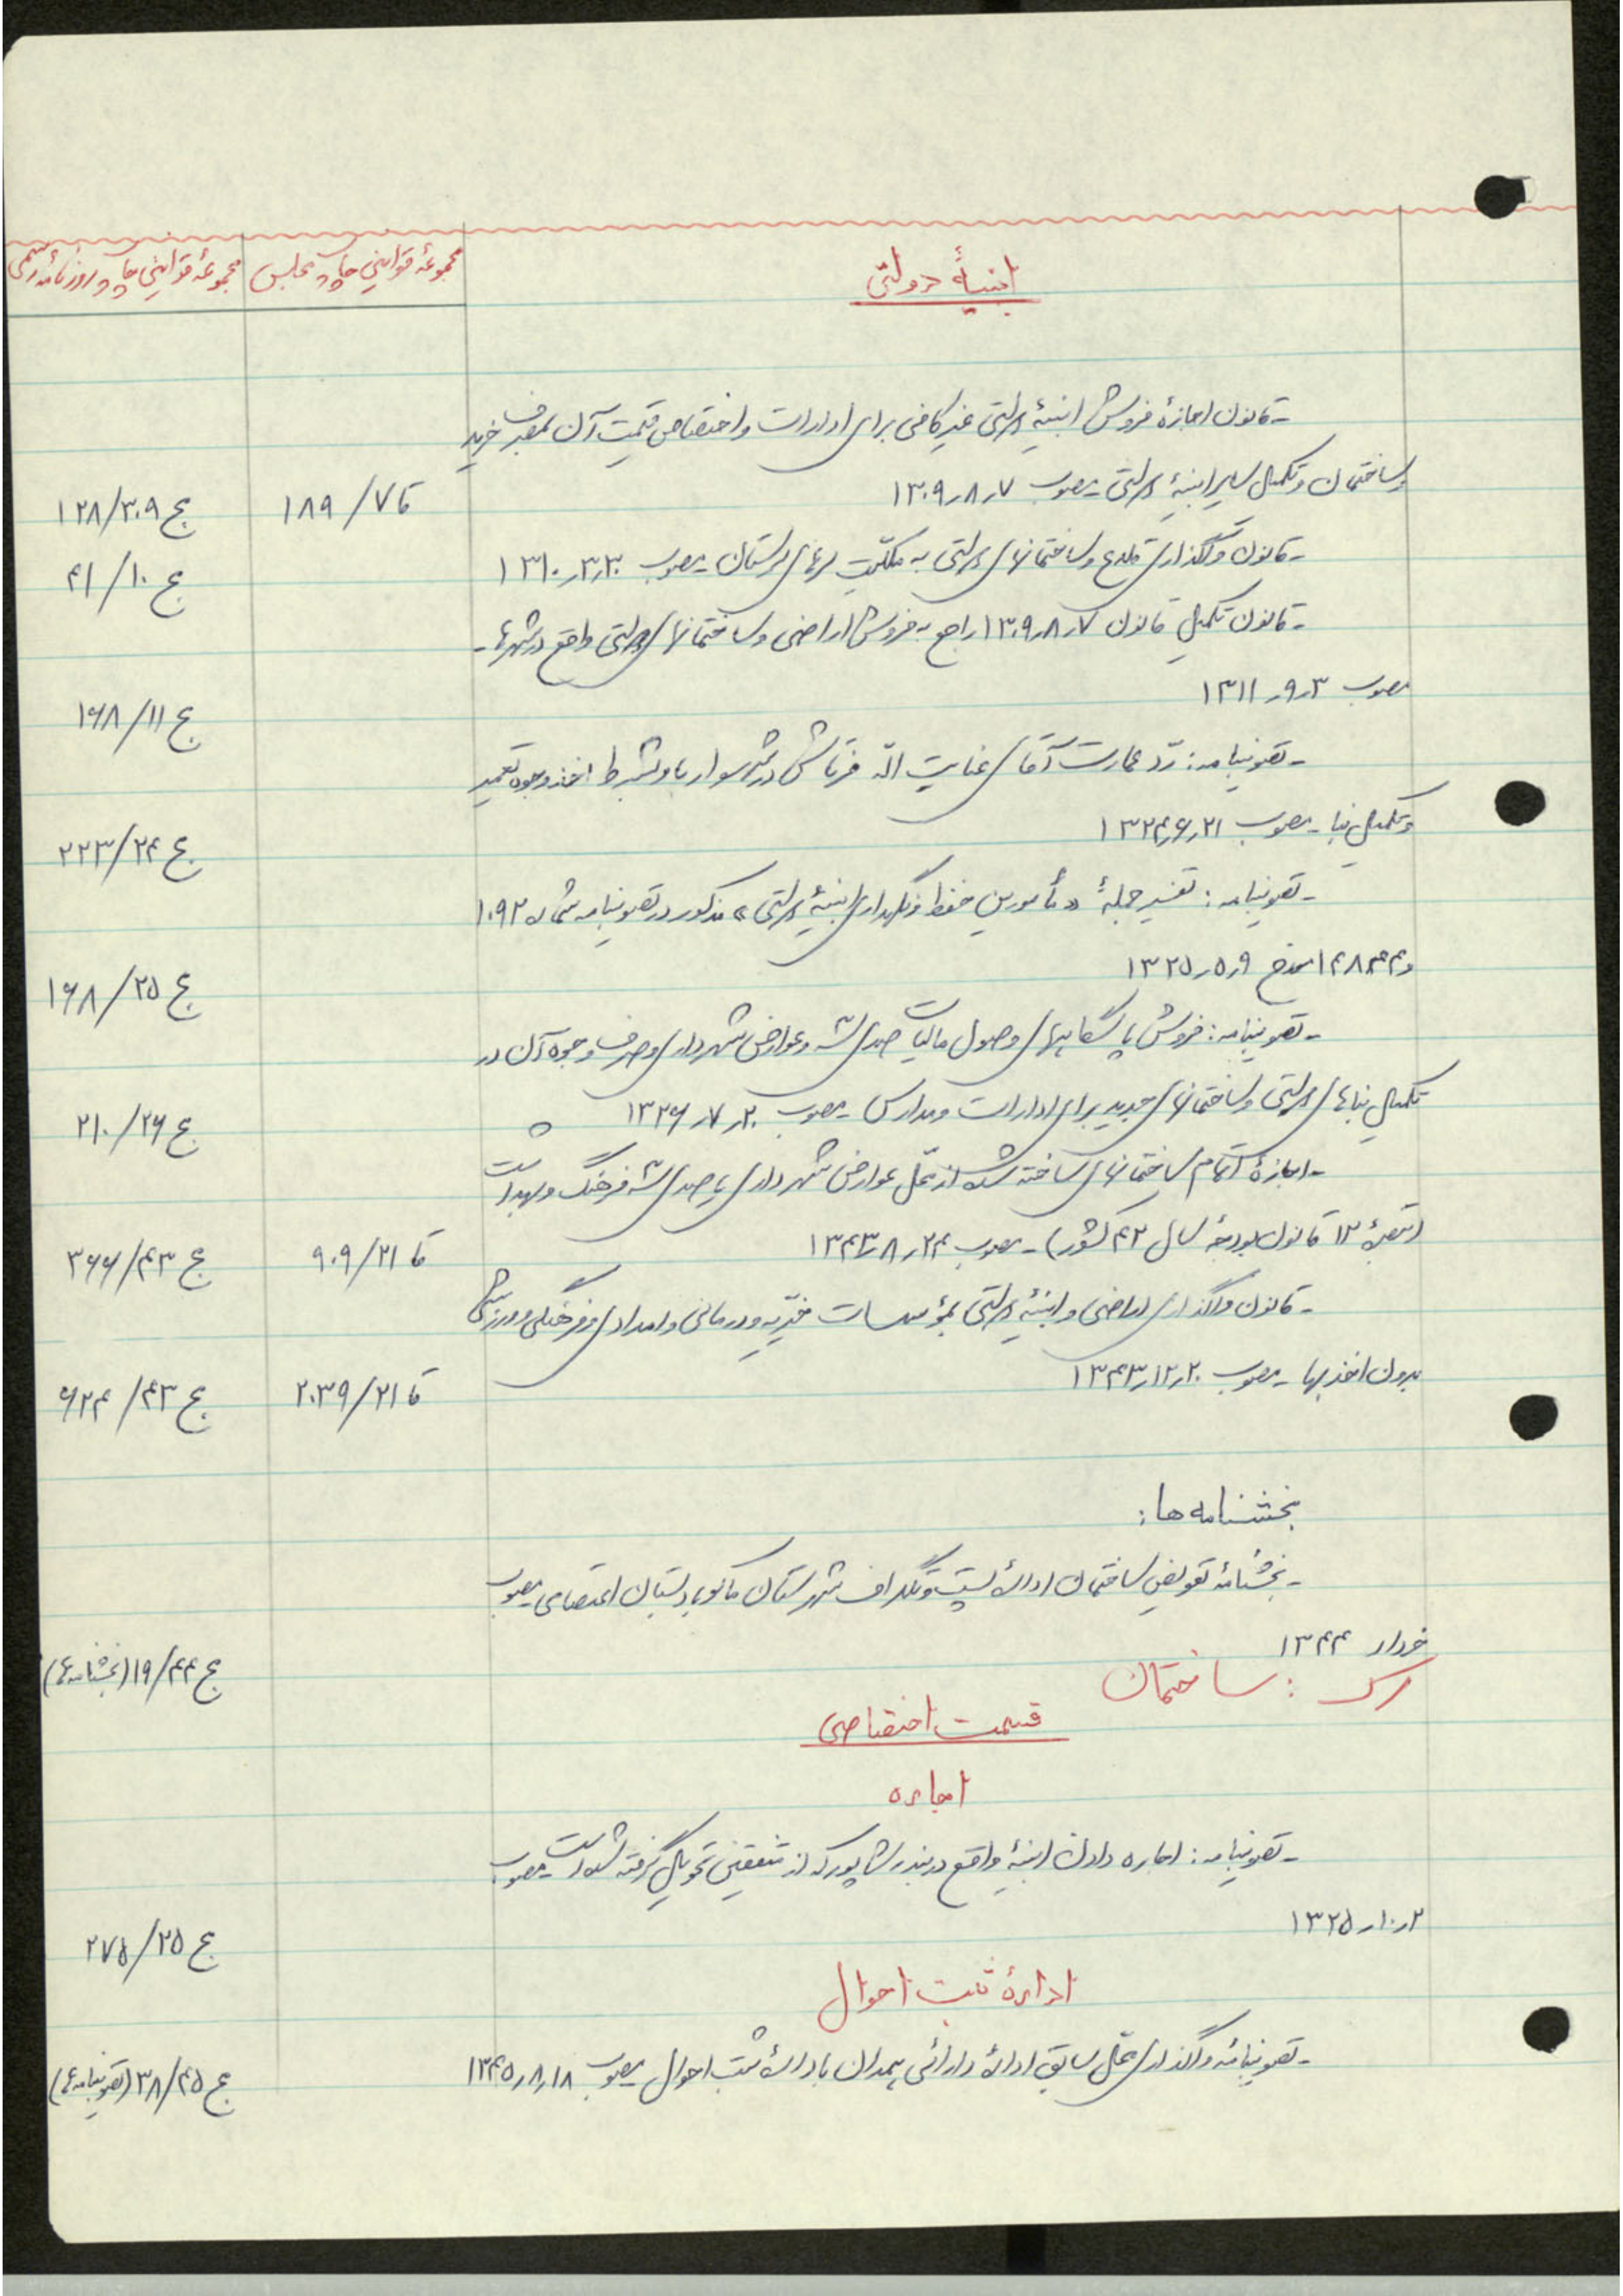 ابنیهٔ دولتی
مجموعهٔ قوانین چاپ مجلس
مجموعهٔ قوانین چاپ روزنامه رسمی
- قانون اجازهٔ فروش ابنیهٔ دولتی غیر کافی برای ادارات و اختصاص قیمت آن بمصرف خرید
و ساختمان و تکمیل سایر ابنیهٔ دولتی - مصوب ۷ر۸ر۱۳۰۹
قا ۷/۱۸۹
ج ۳۰۹/۱۲۸
- قانون واگذاری قلاع و ساختمانهای دولتی به ملکیت لرهای لرستان - مصوب ۳۰ر۳ر۱۳۱۰
ج ۱۰/۴۱
- قانون تکمیل قانون ۷ر۸ر۱۳۰۹ راجع به فروش اراضی و ساختمانهای دولتی واقع در شهرها -
مصوب ۳ر۹ر۱۳۱۱
ج ۱۱/۱۶۸
- تصویبنامه: ردّ عمارت آقای عنایت الله در شهسوار باو بشرط اخذ وجوه تعمیر
و تکمیل بنا - مصوب ۲۱ر۶ر۱۳۲۴
ج ۲۴/۲۲۳
- تصویبنامه: تفسیر جملهٔ «مأمورین حفظ و نگهداری ابنیهٔ دولتی» مذکور در تصویبنامه شماره ۱۰۹۲
و ۱۴۸۴۴ مورخ ۹ر۵ر۱۳۲۵
ج ۲۵/۱۶۸
- تصویبنامه: فروش پاسگاههای وصول مالیات صدی سه و عوارض شهرداری و صرف وجوه آن در
تکمیل بناهای دولتی و ساختمانهای جدید برای ادارات و مدارس - مصوب ۲۰ر۷ر۱۳۲۶
ج ۲۶/۲۱۰
- اجازهٔ اتمام ساختمانهای ساخته شده از محل عوارض شهرداری یا صدی سه فرهنگ و بهداشت
(تبصرهٔ ۱۳ قانون بودجهٔ سال ۴۳ کشور) - مصوب ۲۴ر۸ر۱۳۴۳
قا ۲۱/۹۰۹
ج ۴۳/۳۶۶
- قانون واگذاری اراضی و ابنیهٔ دولتی بمؤسسات خیریه و درمانی و امدادی و فرهنگی و ورزشی
بدون اخذ بها - مصوب ۲۰ر۱۲ر۱۳۴۳
قا ۲۱/۲۰۳۹
ج ۴۳/۶۲۴
بخشنامه ها:
- بخشنامهٔ تعویض ساختمان ادارهٔ پست و تلگراف شهرستان ماکو با دبستان اعتصامی مصوب
خرداد ۱۳۴۴
ج ۴۴/۱۹ (بخشنامه ها)
رک : ساختمان
قسمت اختصاصی
اجاره
- تصویبنامه: اجاره دادن ابنیهٔ واقع در بندر شاپور که از متفقین تحویل گرفته شده است - مصوب
۲ر۱۰ر۱۳۲۵
ج ۲۵/۲۷۵
ادارهٔ ثبت احوال
- تصویبنامهٔ واگذاری محل سابق ادارهٔ دارائی همدان باداره ثبت احوال - مصوب ۱۸ر۸ر۱۳۴۵
ج ۴۵/۳۸ (تصویبنامه ها)